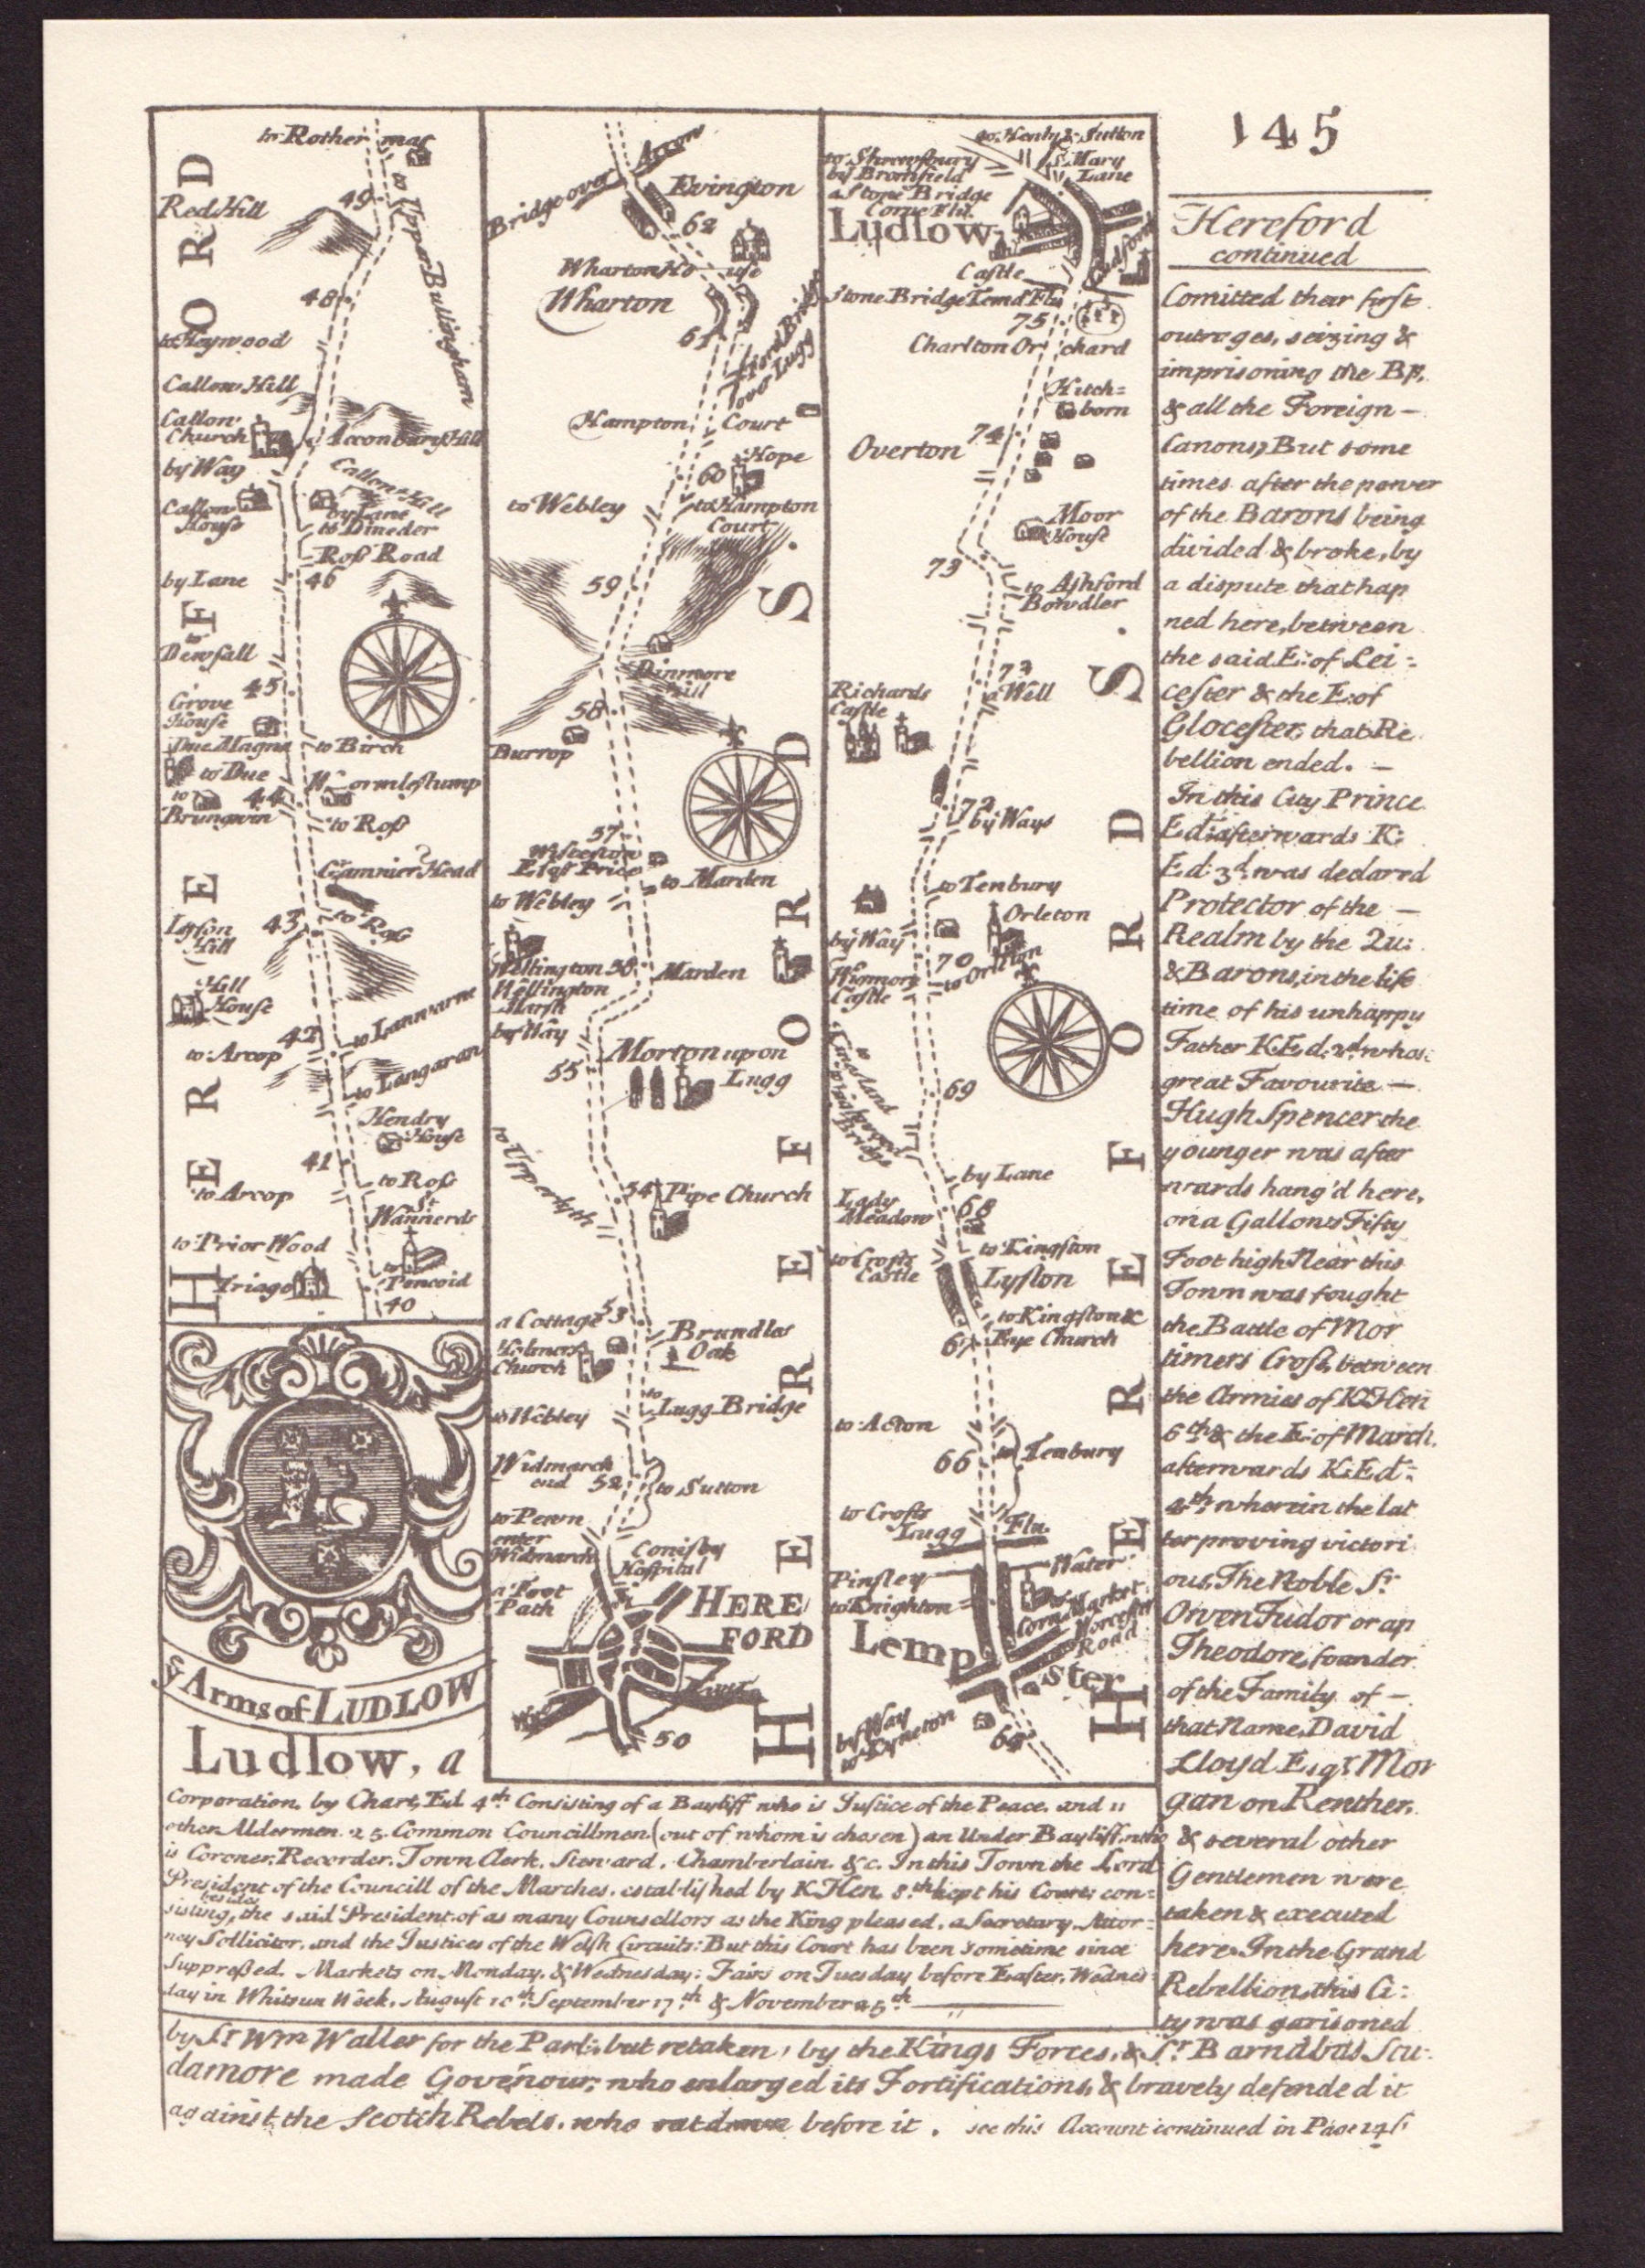 145
to Rother mas
49
Red Hill
to Upper Bullingham
48
to Heywood
Callow Hill
Callow
Church
Acconbury Hill
by Way
Callow Hill
Callow
House
by Lane
to Dineder
Roſs Road
by Lane
46
to
Dewſall
45
Grove
House
Due Magna
to Birch
to Due
Wormleſtump
to
44
Brungwin
to Roſs
Gamnier Head
43
to Roſs
Lyſon
Hill
Hill
House
42
to Lanwarne
to Arcop
to Langaran
Hendry
House
41
to Roſs
to Arcop
St
Wannerds
to Prior Wood
Triago
to
Pencoid
40
HEREFORD
ye Arms of LUDLOW
Bridge over Arrow
Evington
62
Wharton Ho use
Wharton
61
Ford Bridge
over Lugg
Hampton Court
Hope
60
to Webley
to Hampton
Court
59
Dinmore
Hill
58
Burrop
57
Wiſteston
Eſqr Price
to Marden
to Webley
Wellington 56
Marden
Wellington
Marsh
by Way
55
Morton upon
Lugg
to Upperlyth
54 Pipe Church
a Cottage 53
Brundles
Oak
Holmers
Church
to Webley
to
Lugg Bridge
Widmarch
end 52
to Sutton
to Pewn
enter
Widmarch
Conisby
Hoſpital
a Foot
Path
HERE
FORD
Wye
50
HEREFORD S.
to Henly & Sutton
to Shrewsbury
by Bromfield
St Mary
Lane
a Stone Bridge
Corve Flu.
Ludlow
Castle
Ludford
Stone Bridge Temd Flu
75
Charlton Or chard
Hitch=
born
Overton 74
Moor
House
73
to Ashford
Bowdler
73
a Well
Richards
Caſtle
72
by Ways
to Tenbury
Orleton
by Way
70
to Orleton
Wigmore
Caſtle
to
Kinsland
Bridge
69
by Lane
Lady
Meadow
68
to Kingſton
to Crofts
Caſtle
Lyſton
to Kingſton &
Eye Church
67
to Acton
66
to Tenbury
to Crofts
Lugg Flu.
Pinſley
Water
to Knighton
Corn Market
Worceſter
Road
Lemp ster
by Way
to Kyneton
65
HEREFORD S.
Hereford
continued
Comitted their first
outrages, seizing &
imprisoning the Bp.
& all the Foreign –
Canons, But some
times after the power
of the Barons being
divided & broke, by
a dispute that hap
ned here, between
the said E: of Lei =
ceſter & the E: of
Gloceſter, that Re
bellion ended. –
In this City Prince
Ed: afterwards K:
Ed: 3d. was declared
Protector of the –
Realm by the Qu:
& Barons, in the life
time of his unhappy
Father K. Ed: 2d. whos:
great Favourite –
Hugh Spencer the
younger was after
wards hang'd here,
on a Gallows Fifty
Foot high Near this
Town was fought
the Battle of Mor
timers Croſs, between
the Armies of K. Hen
6th & the E: of March,
afterwards K: Ed:
4th. wherein the lat
ter proving victori
ous, The Noble Sr.
Owen Tudor or ap
Theodore, founder
of the Family of –
that Name, David
Lloyd Esqr. Mor
gan on Renther,
& several other
Gentlemen were
taken & executed
here. In the Grand
Rebellion, this Ci:
ty was garisoned
Ludlow, a
Corporation, by Chart, Ed. 4th. Consisting of a Bayliff who is Juſtice of the Peace, and 11
other Aldermen. 25. Common Councillmen (out of whom is chosen) an Under Bayliff, who
is Coroner, Recorder, Town Clerk, Steward, Chamberlain, &c. In this Town the Lord
President of the Councill of the Marches, establiſhed by K. Hen. 8.th kept his Court; con=
sisting, besides the said President, of as many Counsellors as the King pleased, a Secretary, Attor=
ney Sollicitor, and the Juſtices of the Welſh Circuits: But this Court has been sometime since
Suppreſsed. Markets on Monday, & Wednesday; Fairs on Tuesday before Eaſter, Wednes=
day in Whitsun Week, Auguſt 10th. September 17th & November 25th
by Sr Wm Waller for the Parl:, but retaken, by the Kings Forces, & Sr. Barnabas Scu-
damore made Govenour, who enlarged its Fortifications, & bravely defended it
against the Scotch Rebels, who sat down before it. see this Account continued in Page 146